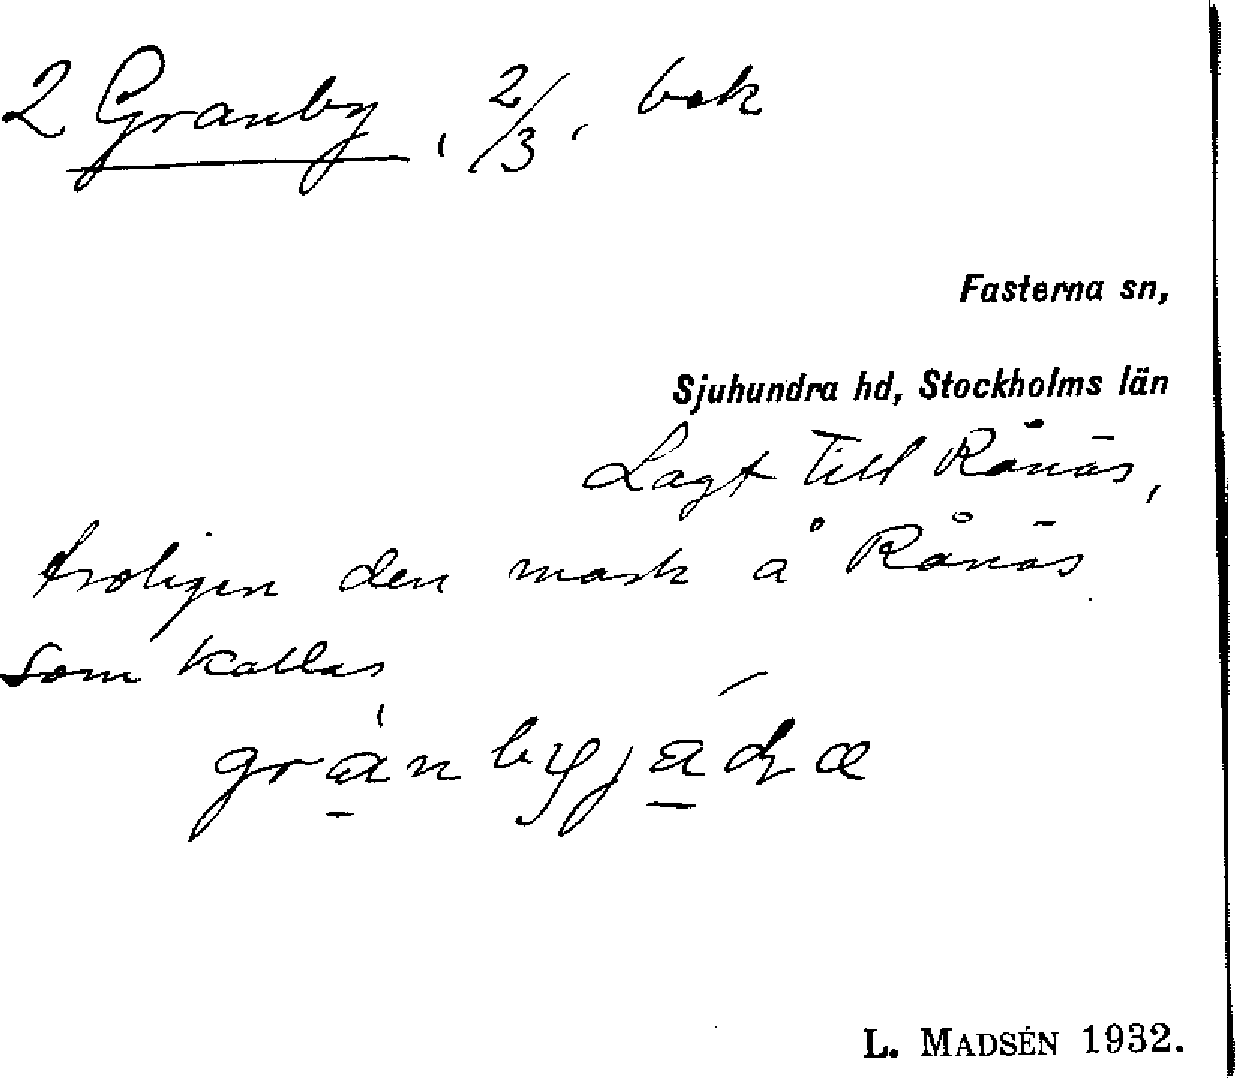 2 Granby, 2/3, bek
Fasterna sn,
Sjuhundra hd, Stockholms län
Lagt till Rånäs,
troligen den mark å Rånäs
som kallas
L. MADSÉN 1932.